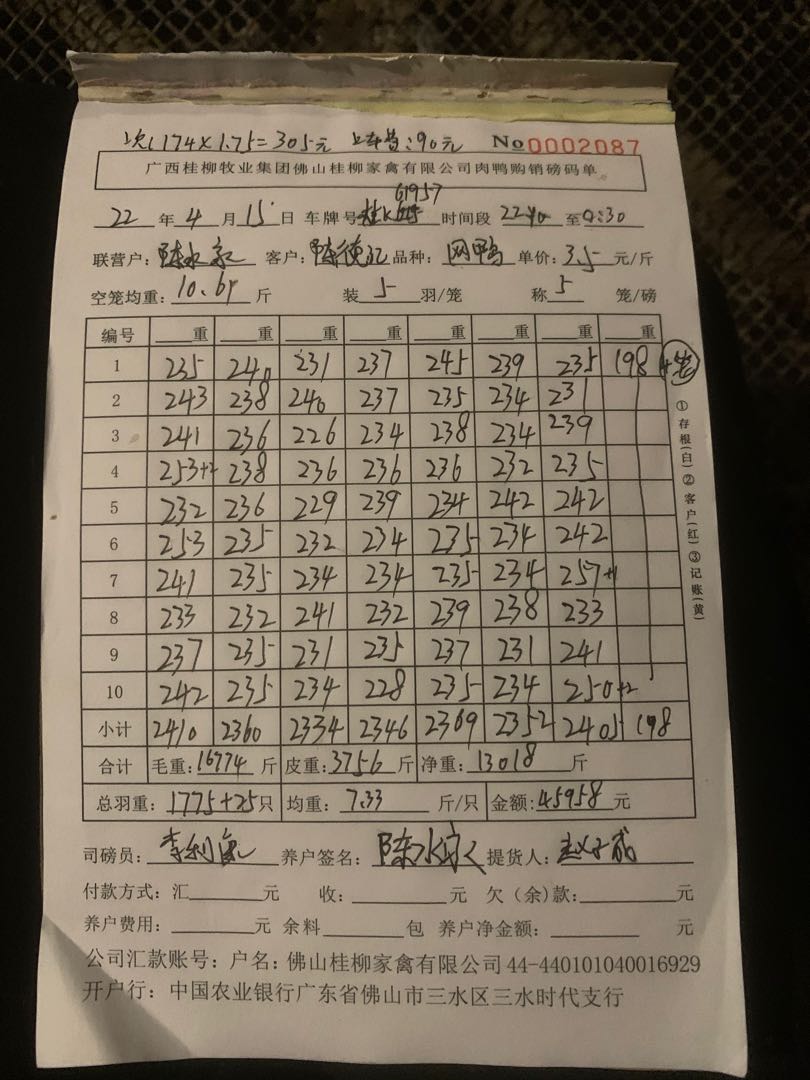 174×1.75=305元 上车苗:90元 No 0002087
广西桂柳牧业集团佛山桂柳家禽有限公司肉鸭购销磅码单
61957
22年4月15日 车牌号 时间段22:40至0:30
联营户:陈水家 客户:陈德 品种:网鸭 单价:3.5元/斤
空笼均重:10.69斤 装5羽/笼 称5笼/磅
编号 重 重 重 重 重 重 重 重
1 235 240 231 237 245 239 235 198
2 243 238 240 237 235 234 231
3 241 236 226 234 238 234 239
4 253+2 238 236 236 236 232 235
5 232 236 229 239 234 242 242
6 253 235 232 234 235 234 242
7 241 235 234 234 235 234 257+1
8 233 232 241 232 239 238 233
9 237 235 231 235 237 231 241
10 242 235 234 228 235 234 250+2
小计 2410 2360 2334 2346 2369 2352 2405 198
合计 毛重:16774斤 皮重:3756斤 净重:13018斤
总羽重:1775+25只 均重:7.33斤/只 金额:45958元
司磅员:李利 养户签名:陈水家 提货人:赵
付款方式:汇 元 收: 元 欠(余)款: 元
养户费用: 元 余料 包 养户净金额: 元
公司汇款账号:户名:佛山桂柳家禽有限公司44-440101040016929
开户行:中国农业银行广东省佛山市三水区三水时代支行
①存根(白)②客户(红)③记账(黄)